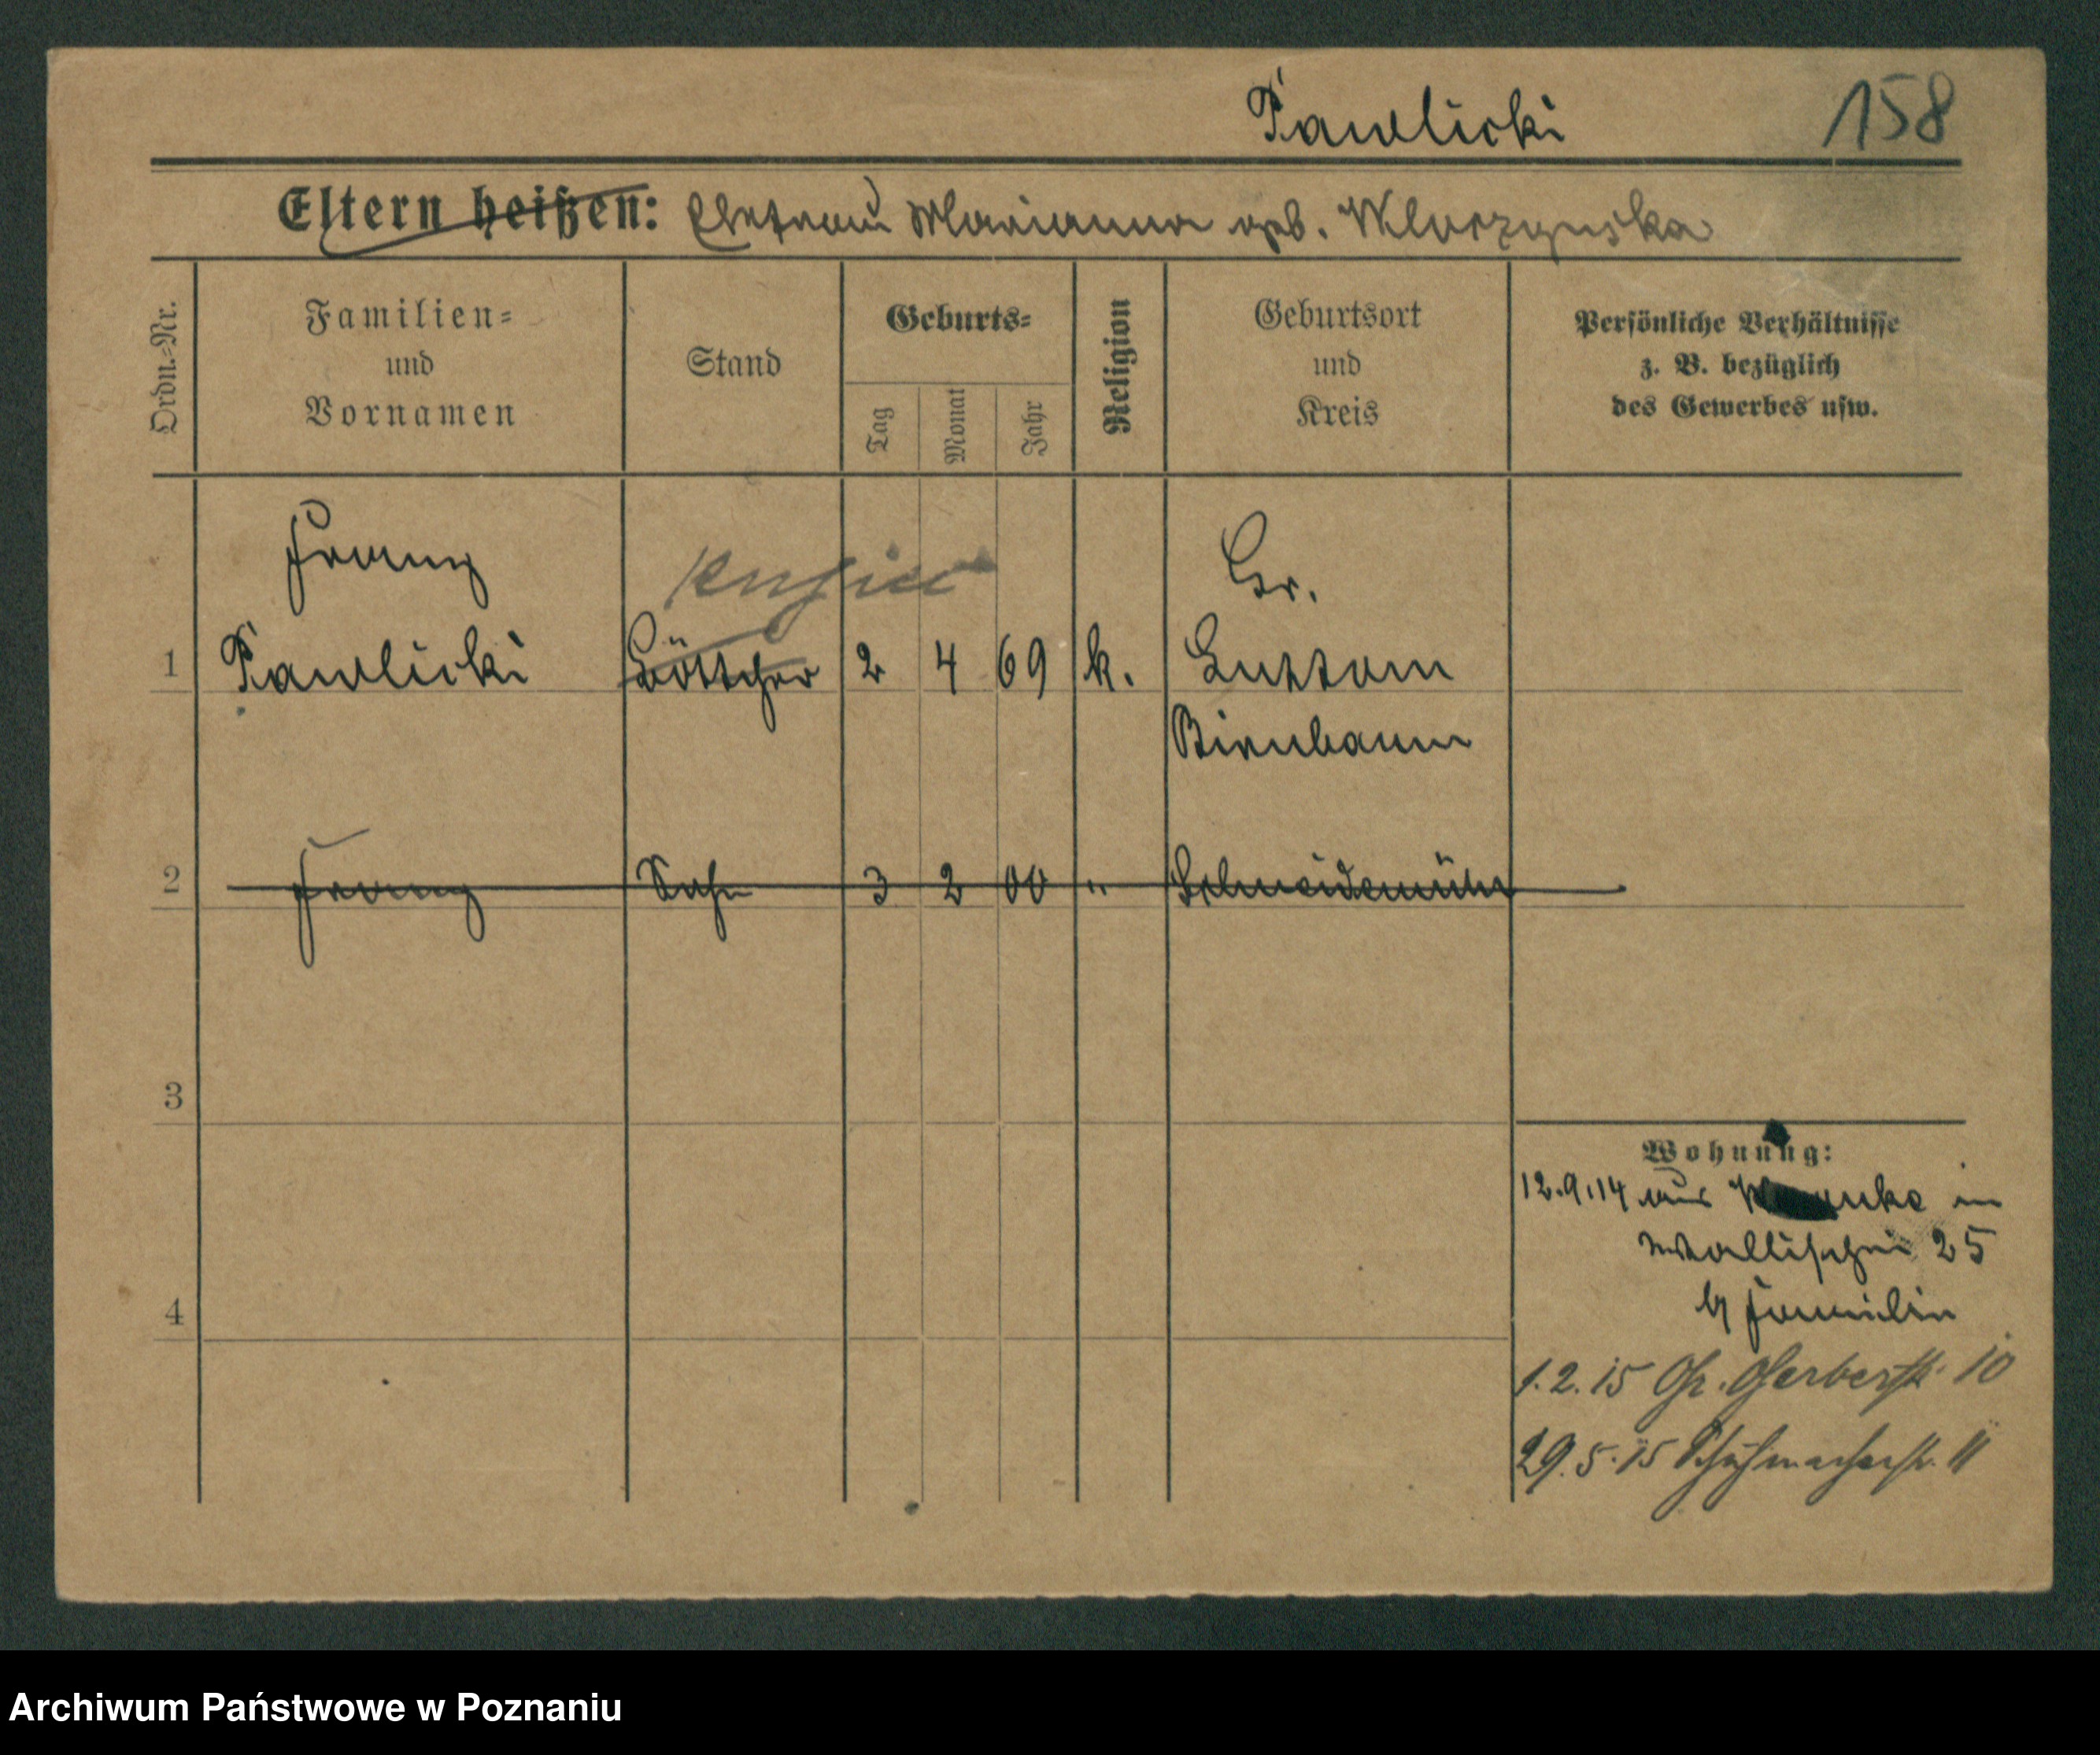 Pawlicki 158
Eltern heißen: Ehefrau Marianna geb.
Ordn.=Nr. Familien= und Vornamen Stand Geburts= Tag Monat Jahr Religion Geburtsort und Kreis Persönliche Verhältnisse z. B. bezüglich des Gewerbes usw.
Franz Gr.
1 Pawlicki Böttcher 2 4 69 k. Luttom
Birnbaum
2 Franz Sohn 3 2 00 " Schneidemühl
3
Wohnung:
12.9.14 aus in
Wallischei 25
4 Familie
1.2.15 Gr. Gerberstr. 10
29.5.15 Schuhmacherstr. 11
Archiwum Państwowe w Poznaniu